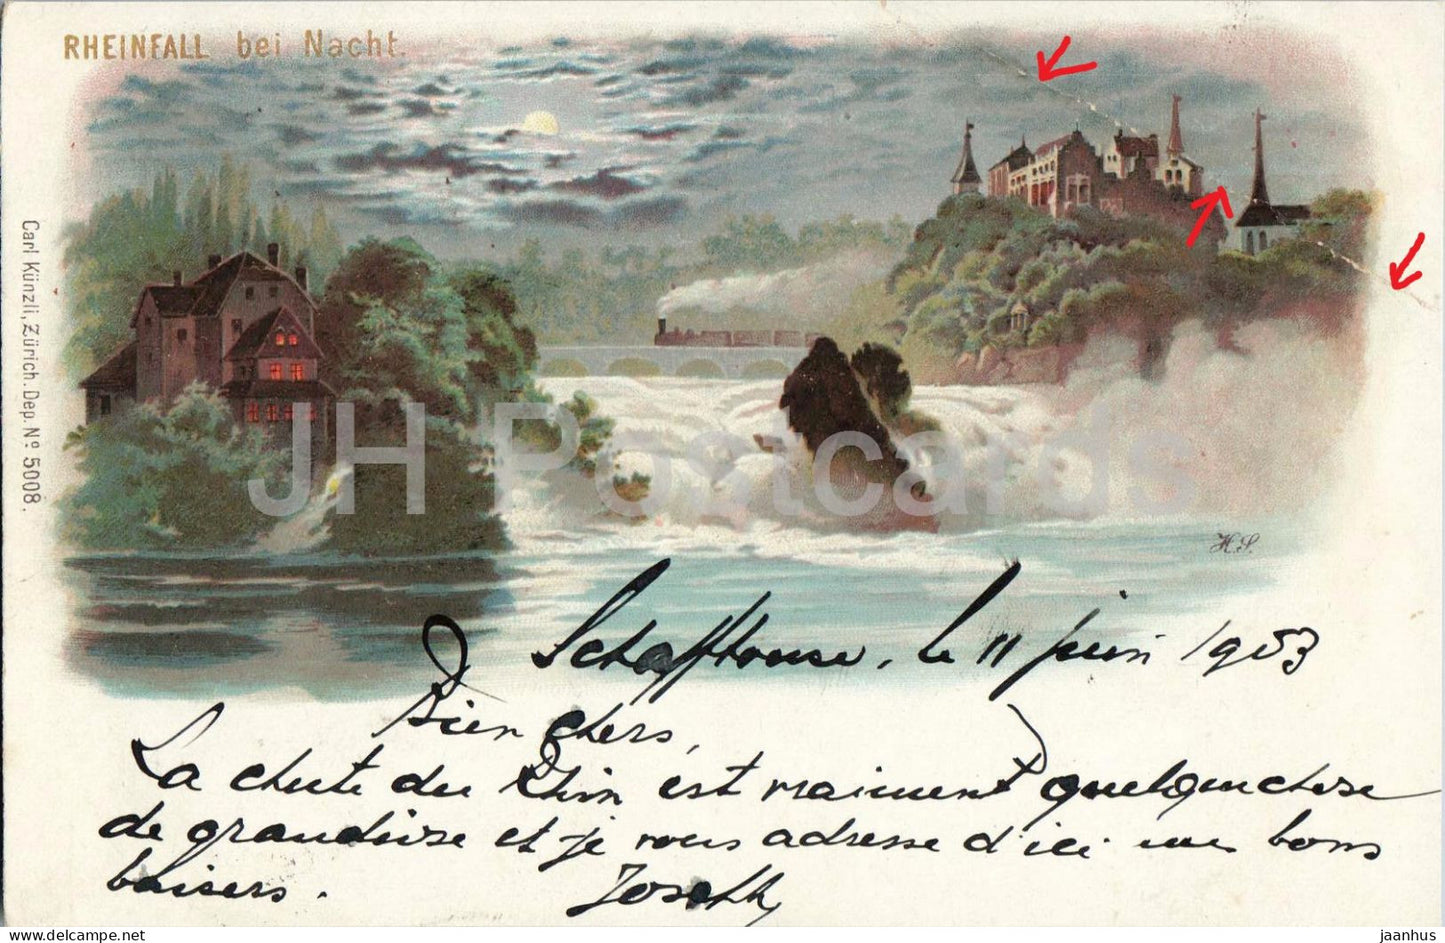 RHEINFALL bei Nacht.
Carl Künzli, Zürich. Dep. Nº 5008.
JH Postcards
H.S.
Schaffhouse, le 11 juin 1903
Bien chers,
La chute du Rhin est vraiment quelquechose
de grandiose et je vous adresse d'ici mes bons
baisers. Joseph
delcampe.net
jaanhus